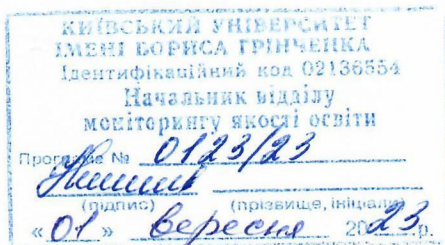 КИЇВСЬКИЙ УНІВЕРСИТЕТ
ІМЕНІ БОРИСА ГРІНЧЕНКА
Ідентифікаційний код 02136554
Начальник відділу
моніторингу якості освіти
Програма № 0123/23
(підпис) (прізвище, ініціали)
«01» вересня 2023 р.